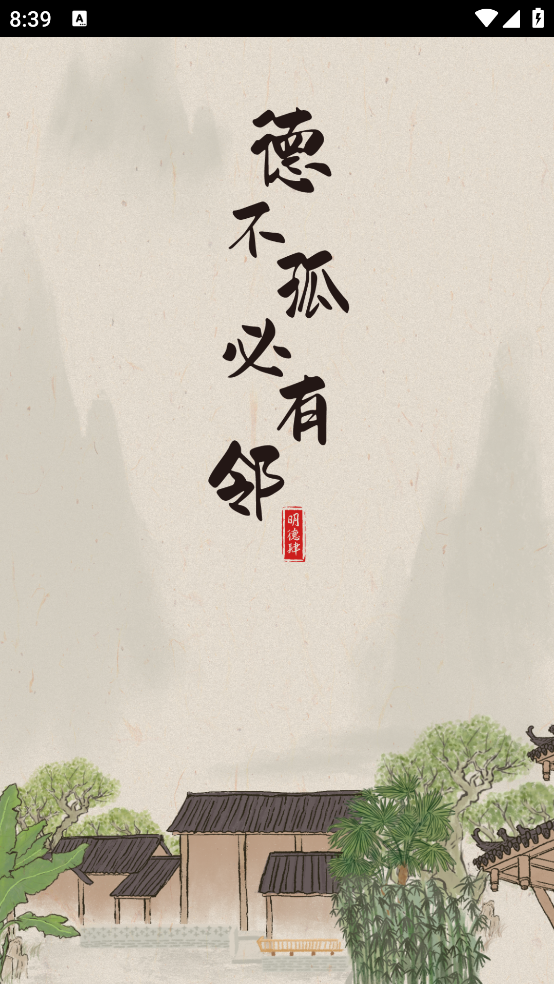 8:39
A
德不孤必有邻
明德肆